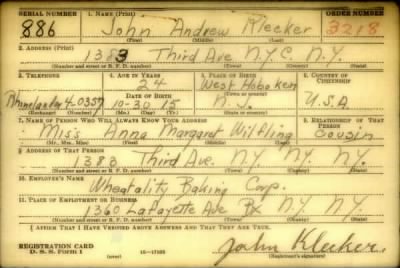 SERIAL NUMBER 1. NAME (Print) ORDER NUMBER
886 John Andrew Klecker 3218
(First) (Middle) (Last)
2. ADDRESS (Print)
1383 Third Ave N.Y.C. N.Y.
(Number and street or R. F. D. number) (Town) (County) (State)
3. TELEPHONE 4. AGE IN YEARS 5. PLACE OF BIRTH 6. COUNTRY OF CITIZENSHIP
24 West Hoboken
DATE OF BIRTH (Town or county)
Rhinelander 4-0357 10-30-15 N.J. U.S.A
(Exchange) (Number) (Mo.) (Day) (Yr.) (State or country)
7. NAME OF PERSON WHO WILL ALWAYS KNOW YOUR ADDRESS 8. RELATIONSHIP OF THAT PERSON
Miss Anna Margaret Wilfling Cousin
(Mr., Mrs., Miss) (First) (Middle) (Last)
9. ADDRESS OF THAT PERSON
1383 Third Ave. N.Y. N.Y. N.Y.
(Number and street or R. F. D. number) (Town) (County) (State)
10. EMPLOYER'S NAME
Wheatality Baking Corp.
11. PLACE OF EMPLOYMENT OR BUSINESS
1360 Lafayette Ave Bx N.Y. N.Y.
(Number and street or R. F. D. number) (Town) (County) (State)
I AFFIRM THAT I HAVE VERIFIED ABOVE ANSWERS AND THAT THEY ARE TRUE.
REGISTRATION CARD
D. S. S. FORM 1 (over) John Klecker.
(Registrant's signature)